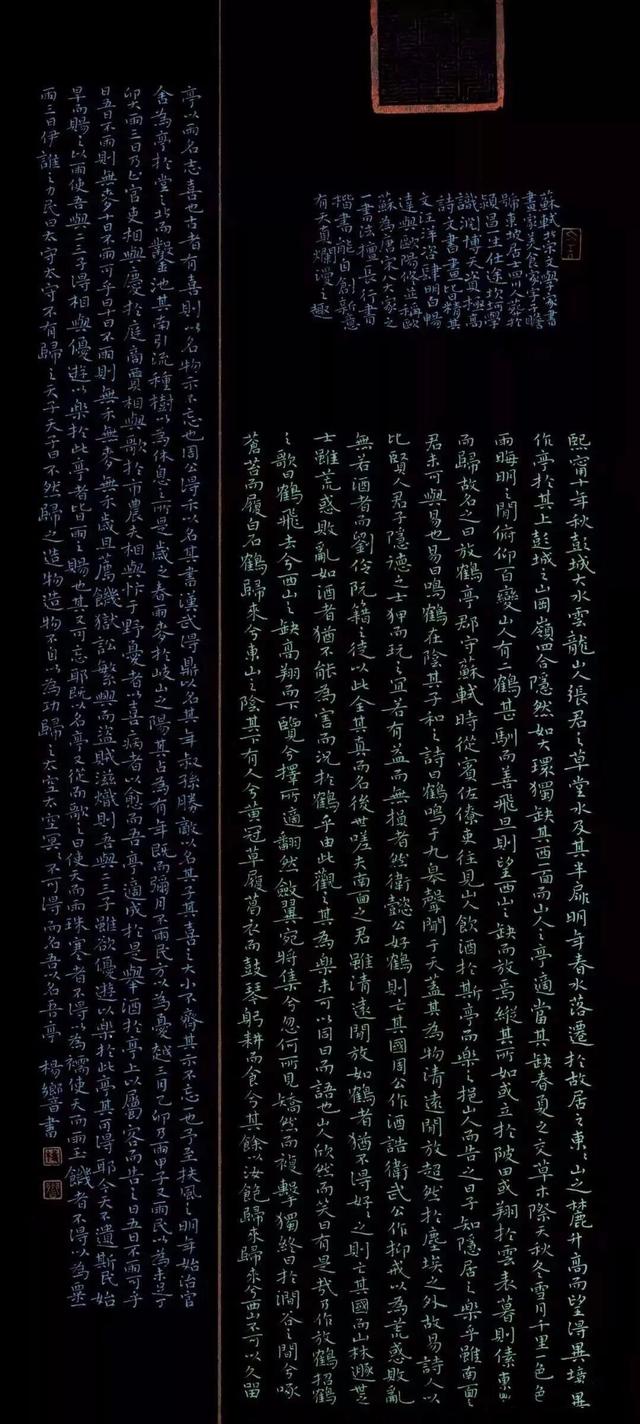 蘇軾宋文學家書
畫家美食家字子瞻
號東坡居士四川人葬於
潁昌一生仕途坎坷學
識淵博天資極高
詩文書畫皆精其
文汪洋恣肆明白暢
達與歐陽修並稱歐
蘇為唐宋八大家之
一書法擅長行書
楷書能自創新意
有天真爛漫之趣
熙寧十年秋彭城大水雲龍山人張君之草堂水及其半扉明年春水落遷於故居之東東山之麓升高而望得異境焉
作亭於其上彭城之山岡嶺四合隱然如大環獨缺其西面而山人之亭適當其缺春夏之交草木際天秋冬雪月千里一色風
雨晦明之間俯仰百變山人有二鶴甚馴而善飛旦則望西山之缺而放焉縱其所如或立於陂田或翔於雲表暮則傃東山
而歸故名之曰放鶴亭郡守蘇軾時從賓佐僚吏往見山人飲酒於斯亭而樂之挹山人而告之曰子知隱居之樂乎雖南面之
君未可與易也易曰鳴鶴在陰其子和之詩曰鶴鳴于九皋聲聞于天蓋其為物清遠閒放超然於塵埃之外故易詩人以
比賢人君子隱德之士狎而玩之宜若有益而無損者然衛懿公好鶴則亡其國周公作酒誥衛武公作抑戒以為荒惑敗亂
無若酒者而劉伶阮籍之徒以此全其真而名後世嗟夫南面之君雖清遠閒放如鶴者猶不得好好之則亡其國而山林遯世之
士雖荒惑敗亂如酒者猶不能為害而況於鶴乎由此觀之其為樂未可以同日而語也山人欣然而笑曰有是哉乃作放鶴招鶴
之歌曰鶴飛去兮西山之缺高翔而下覽兮擇所適翻然斂翼宛將集兮忽何所見矯然而復擊獨終日於澗谷之間兮啄
蒼苔而履白石鶴歸來兮東山之陰其下有人兮黃冠草履葛衣而鼓琴躬耕而食兮其餘以汝飽歸來歸來兮西山不可以久留
亭以雨名志喜也古者有喜則以名物示不忘也周公得禾以名其書漢武得鼎以名其年叔孫勝敵以名其子其喜之大小不齊其示不忘一也予至扶風之明年始治官
舍為亭於堂之北而鑿池其南引流種樹以為休息之所是歲之春雨麥於岐山之陽其占為有年既而彌月不雨民方以為憂越三月乙卯乃雨甲子又雨民以為未足丁
卯大雨三日乃止官吏相與慶於庭商賈相與歌於市農夫相與忭于野憂者以喜病者以愈而吾亭適成於是舉酒於亭上以屬客而告之曰五日不雨可乎
曰五日不雨則無麥十日不雨可乎曰十日不雨則無禾無麥無禾歲且薦饑獄訟繁興而盜賊滋熾則吾與二三子雖欲優遊以樂於此亭其可得耶今天不遺斯民始
旱而賜之以雨使吾與二三子得相與優遊以樂於此亭者皆雨之賜也其又可忘耶既以名亭又從而歌之曰使天而雨珠寒者不得以為襦使天而雨玉饑者不得以為粟一
雨三日伊誰之力民曰太守太守不有歸之天子天子曰不然歸之造物造物不自以為功歸之太空太空冥冥不可得而名吾以名吾亭 楊鄉晋書